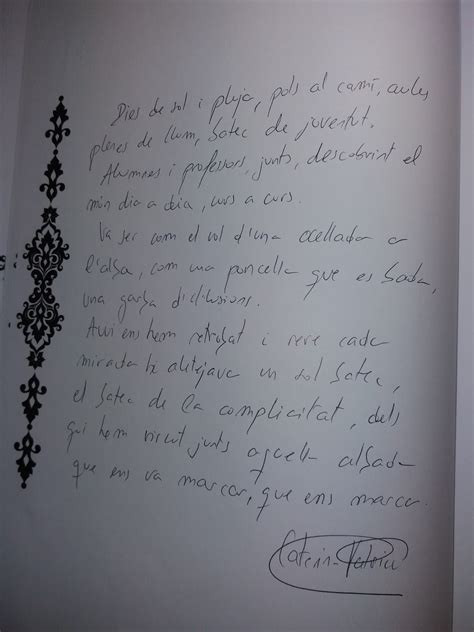 Dies de sol i pluja, pols al camí, aules
plenes de llum, batec de joventut.
Alumnes i professors, junts, descobrint el
món dia a dia, curs a curs.
Va ser com el vol d'una ocellada a
l'alba, com una poncella que es bada,
una garba d'il·lusions.
Avui ens hem retrobat i rere cada
mirada hi aletejava un sol batec,
el batec de la complicitat, dels
qui hem viscut junts aquella albada
que ens va marcar, que ens marca.